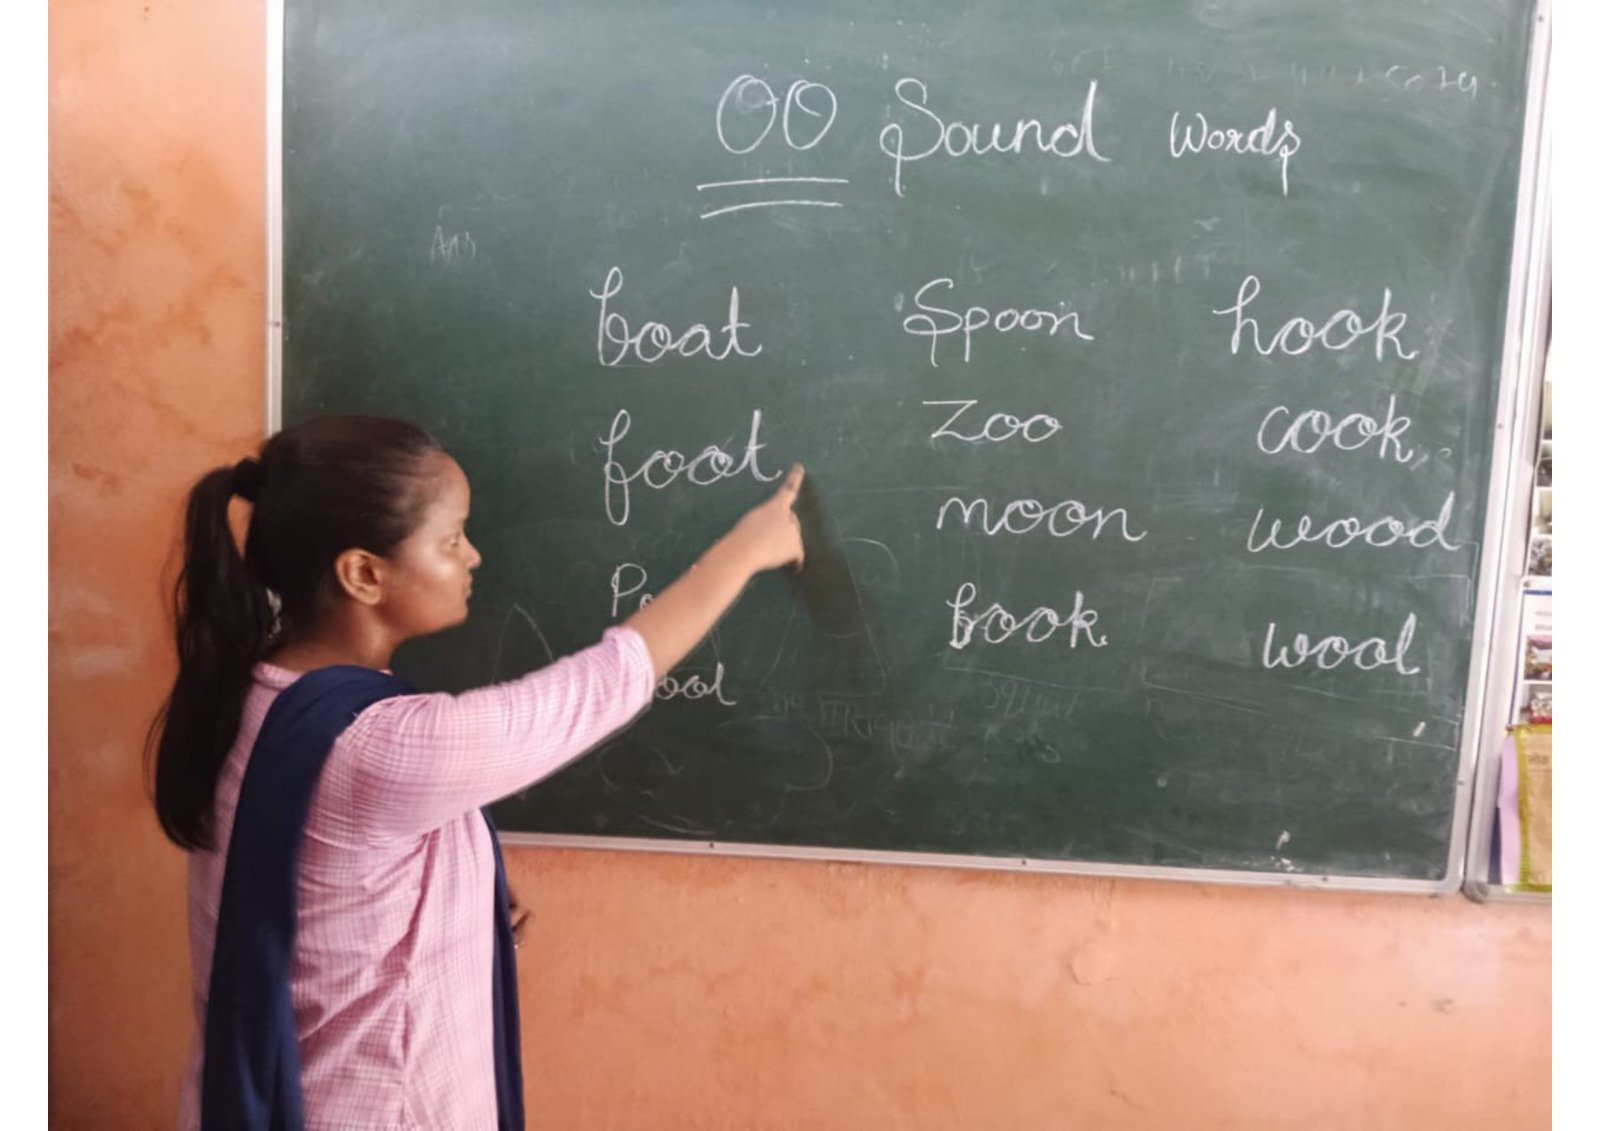 OO Sound Words
boat Spoon hook
foot Zoo cook
moon wood
book wool